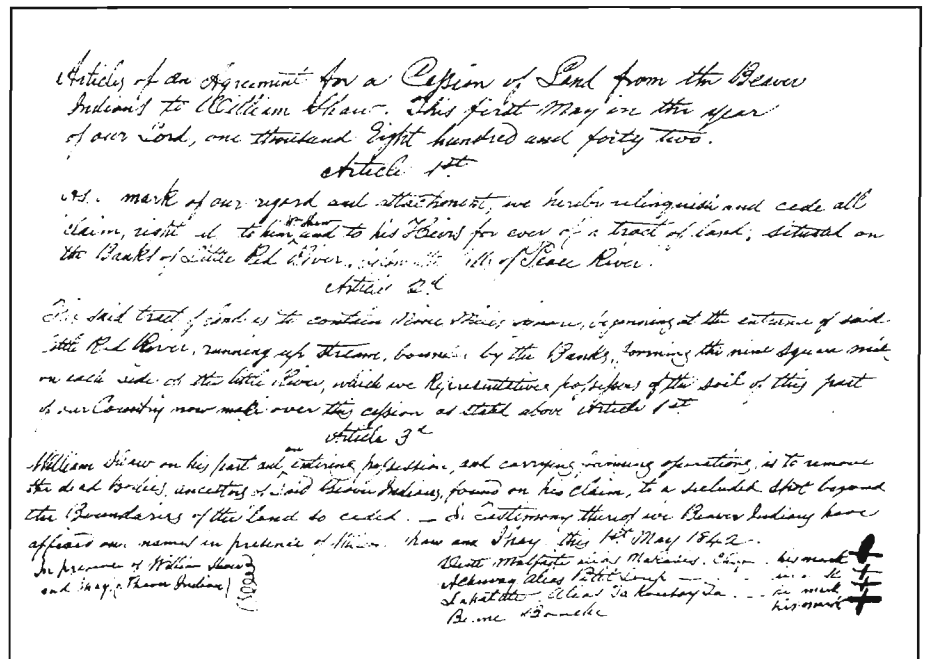 Articles of an Agreement for a Cession of Land from the Beaver
Indian's to William Shaw. This first May in the year
of our Lord, one thousand Eight hundred and forty two.
Article 1st
As mark of our regard and attachment, we hereby relinquish and cede all
claim, right to him Wm Shaw and to his Heirs for ever of a tract of land, situated on
the Banks of Little Red River, of Peace River.
Article 2d
The said tract of land is to contain Nine Miles square, beginning at the entrance of said
little Red River, running up stream, bounded by the Banks, forming the nine square mile
on each side of the little River, which we Representatives possessors of the soil of this part
of our Country now make over this cession as stated above Article 1st
Article 3d
William Shaw on his part and on entering possession, and carrying farming operations, is to remove
the dead Bodies, ancestors of said Beaver Indians, found on his claim, to a secluded spot beyond
the Boundaries of the Land so ceded. – In testimony thereof we Beaver Indians have
affixed our names in presence of Shaw and this 1st May 1842.
In presence of William Shaw
and Indian)
alias his mark +
alias Petit Loup +
Alias mark +
his mark +